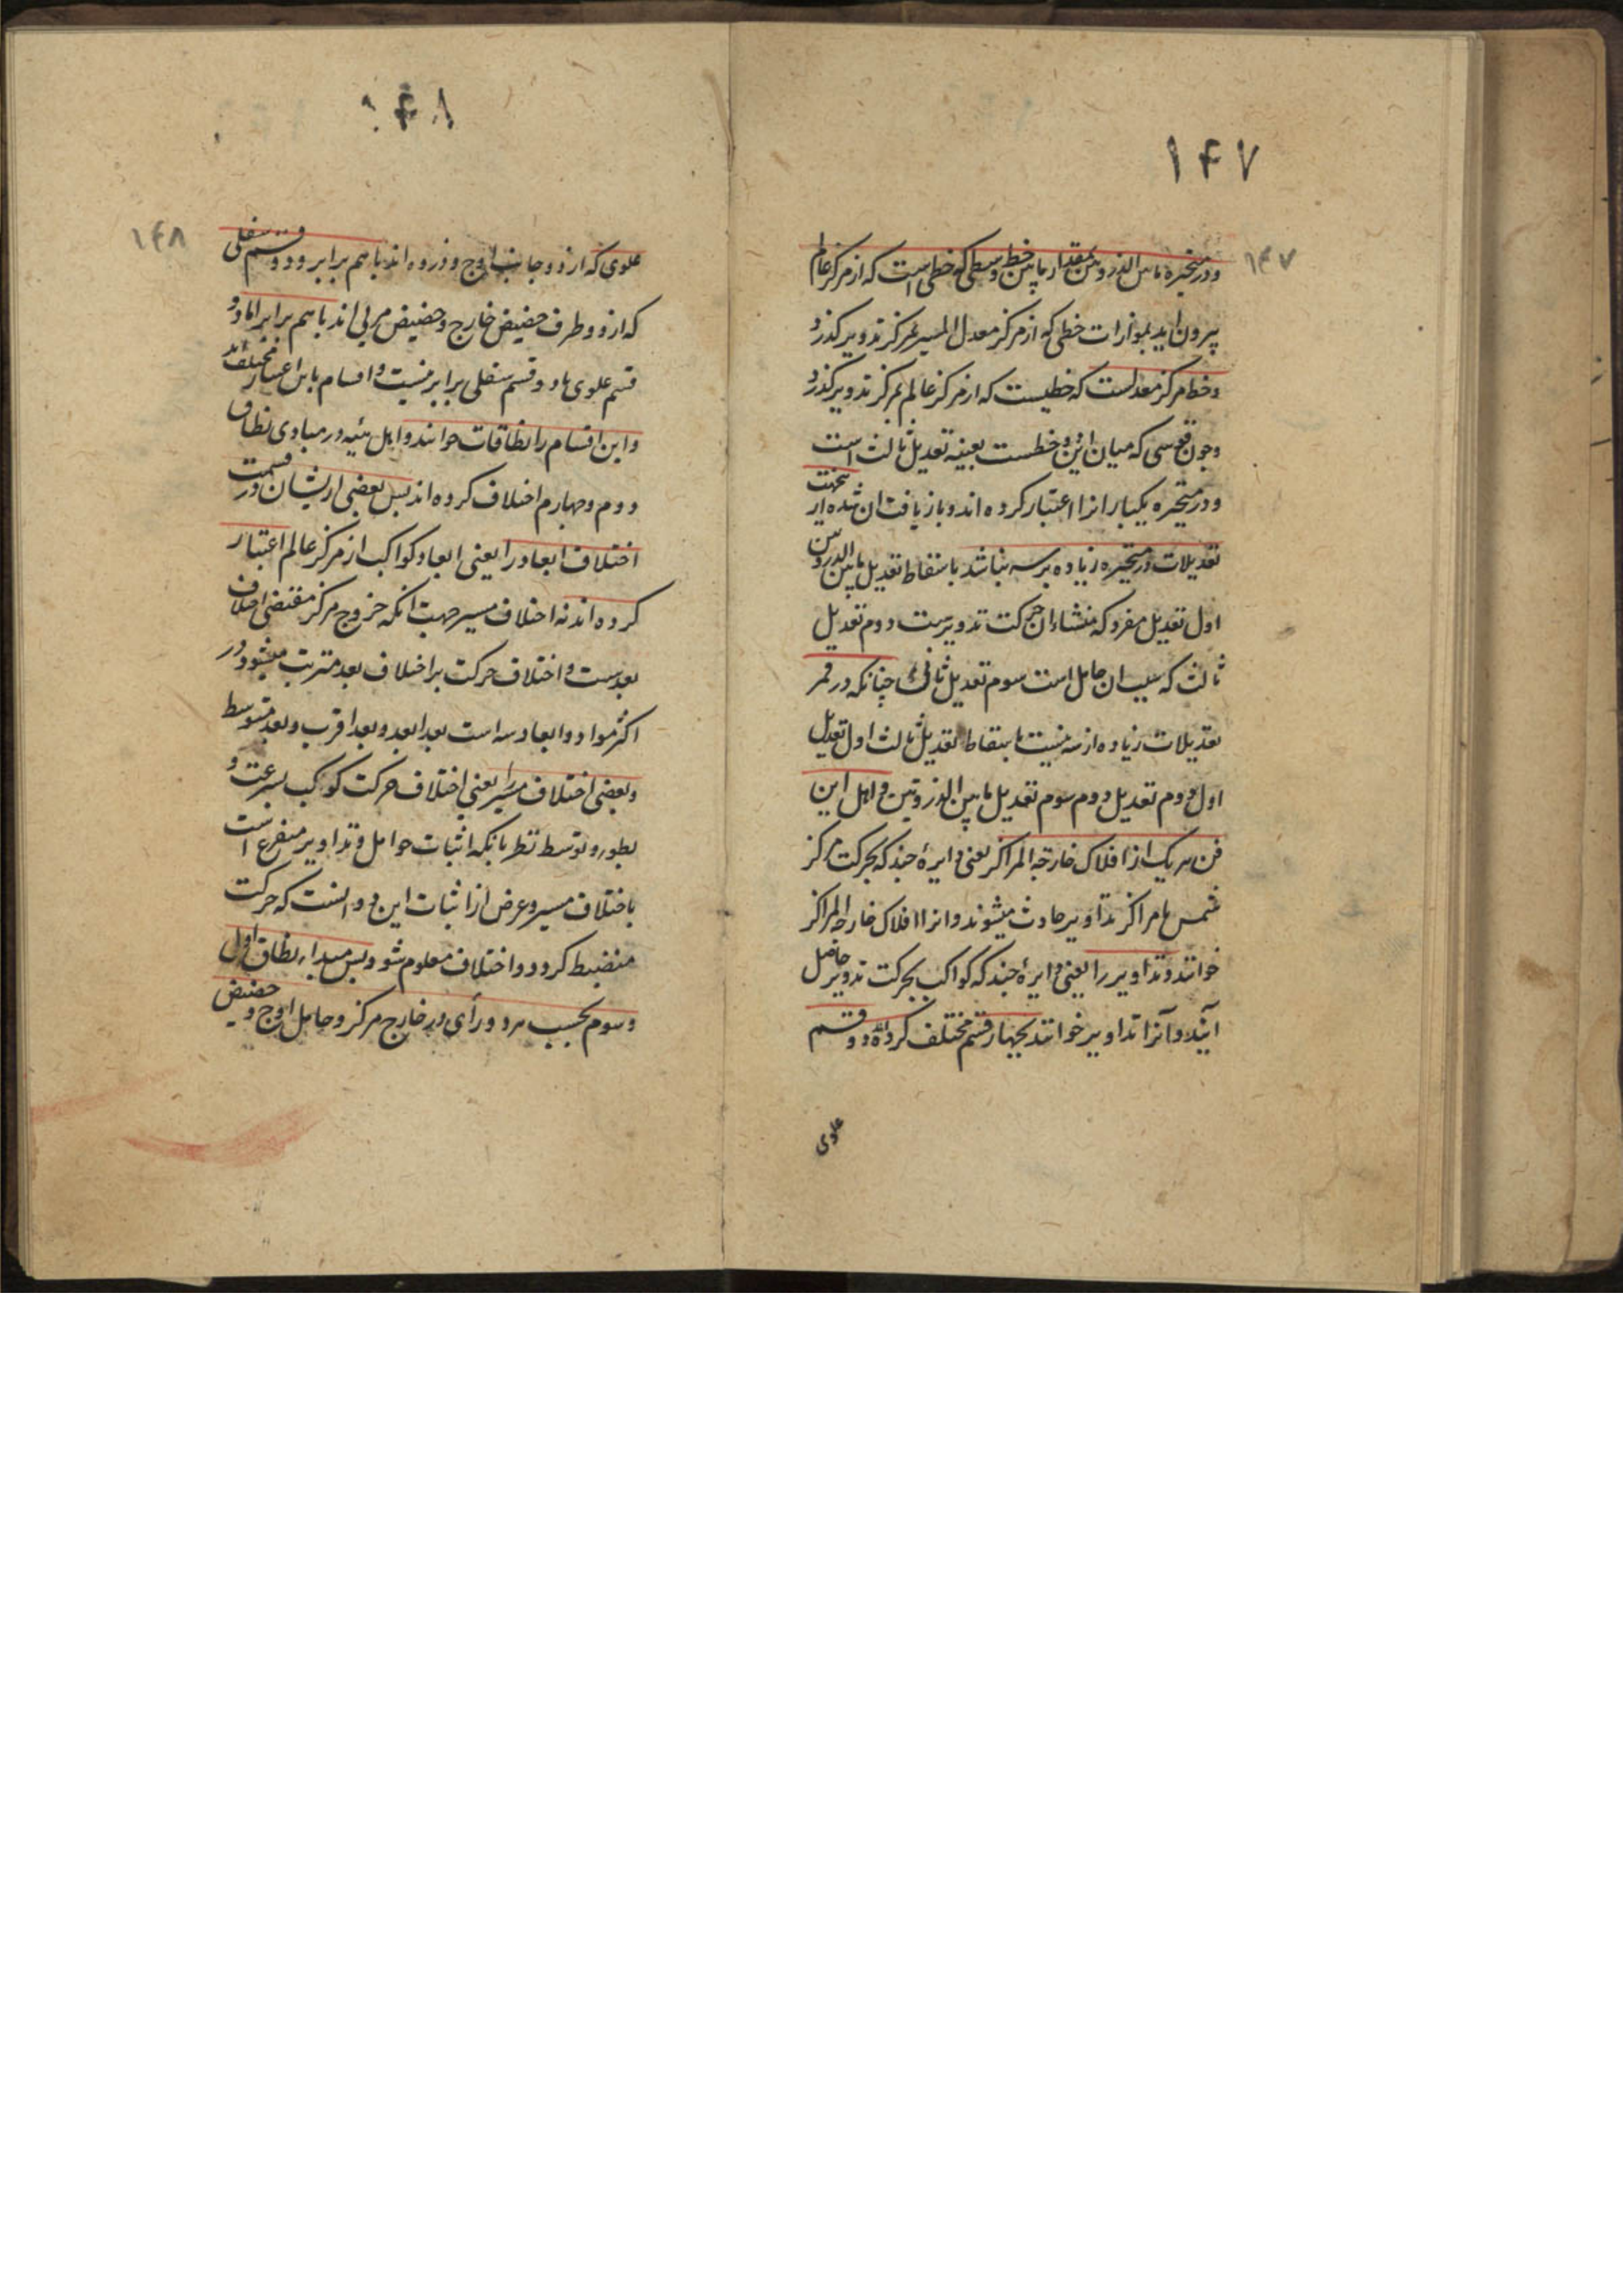 ۱۴۷
۱۴۷
ودر متحیره ما بین الذروتین بمقدار ما بین خط وسطی که خطی است که از مرکز عالم
بیرون اید بموازات خطی که از مرکز معدل المسیر بمرکز تدویر کذرد
وخط مرکز معدلست که خطیست که از مرکز عالم بمرکز تدویر کذرد
وچون قوسی که میان این دو خطست بعینه تعدیل ثالث است
ودر متحیره یکبار انرا اعتبار کرده اند وباز یافت ان شده از
تعدیلات در متحیره زیاده بر سه نباشد باسقاط تعدیل ما بین الذروتین
اول تعدیل مفرد که منشاء ان حرکت تدویرست دوم تعدیل
ثالث که سبب ان حامل است سوم تعدیل ثانی چنانکه در قمر
تعدیلات زیاده از سه نیست باسقاط تعدیل ثالث اول تعدیل
اول دوم تعدیل دوم سوم تعدیل ما بین الذروتین واهل این
فن هریک از افلاک خارجة المراکز یعنی دایرۀ چند که بحرکت مرکز
شمس یا مراکز تداویر حادث میشوند وانرا افلاک خارجة المراکز
خوانند وتداویر را یعنی دایرۀ چند که کواکب بحرکت تدویر حاصل
آیند وآنرا تداویر خوانند بچهار قسم مختلف کرده اند دو قسم
علوی
۱۴۸
۱۴۸
علوی که از دو جانب اوج وذروه اند باهم برابر ودو قسم سفلی
که از دو طرف حضیض خارج وحضیض مرئی اند باهم برابر اما دو
قسم علوی با دو قسم سفلی برابر نیست واقسام باین اعتبار مختلف اند
واین اقسام را نطاقات خوانند واهل هیئه در مبادی نطاق
دوم وچهارم اختلاف کرده اند پس بعضی ازیشان در قسمت
اختلاف ابعاد را یعنی ابعاد کواکب از مرکز عالم اعتبار
کرده اند نه اختلاف مسیر جهت انکه خروج مرکز مقتضی اختلاف
بعدست واختلاف حرکت بر اختلاف بعد مترتب میشود ودر
اکثر مواد دو ابعاد سه است بعد ابعد وبعد اقرب وبعد متوسط
وبعضی اختلاف مسیر را یعنی اختلاف حرکت کوکب بسرعت و
بطور وتوسط نظر بانکه اثبات حوامل وتداویر متفرع است
باختلاف مسیر وغرض از اثبات این دو انست که حرکت
منضبط کردد واختلاف معلوم شود پس مبداء نطاق اول
وسوم بحسب هر دو رأی در خارج مرکز وحامل اوج وحضیض